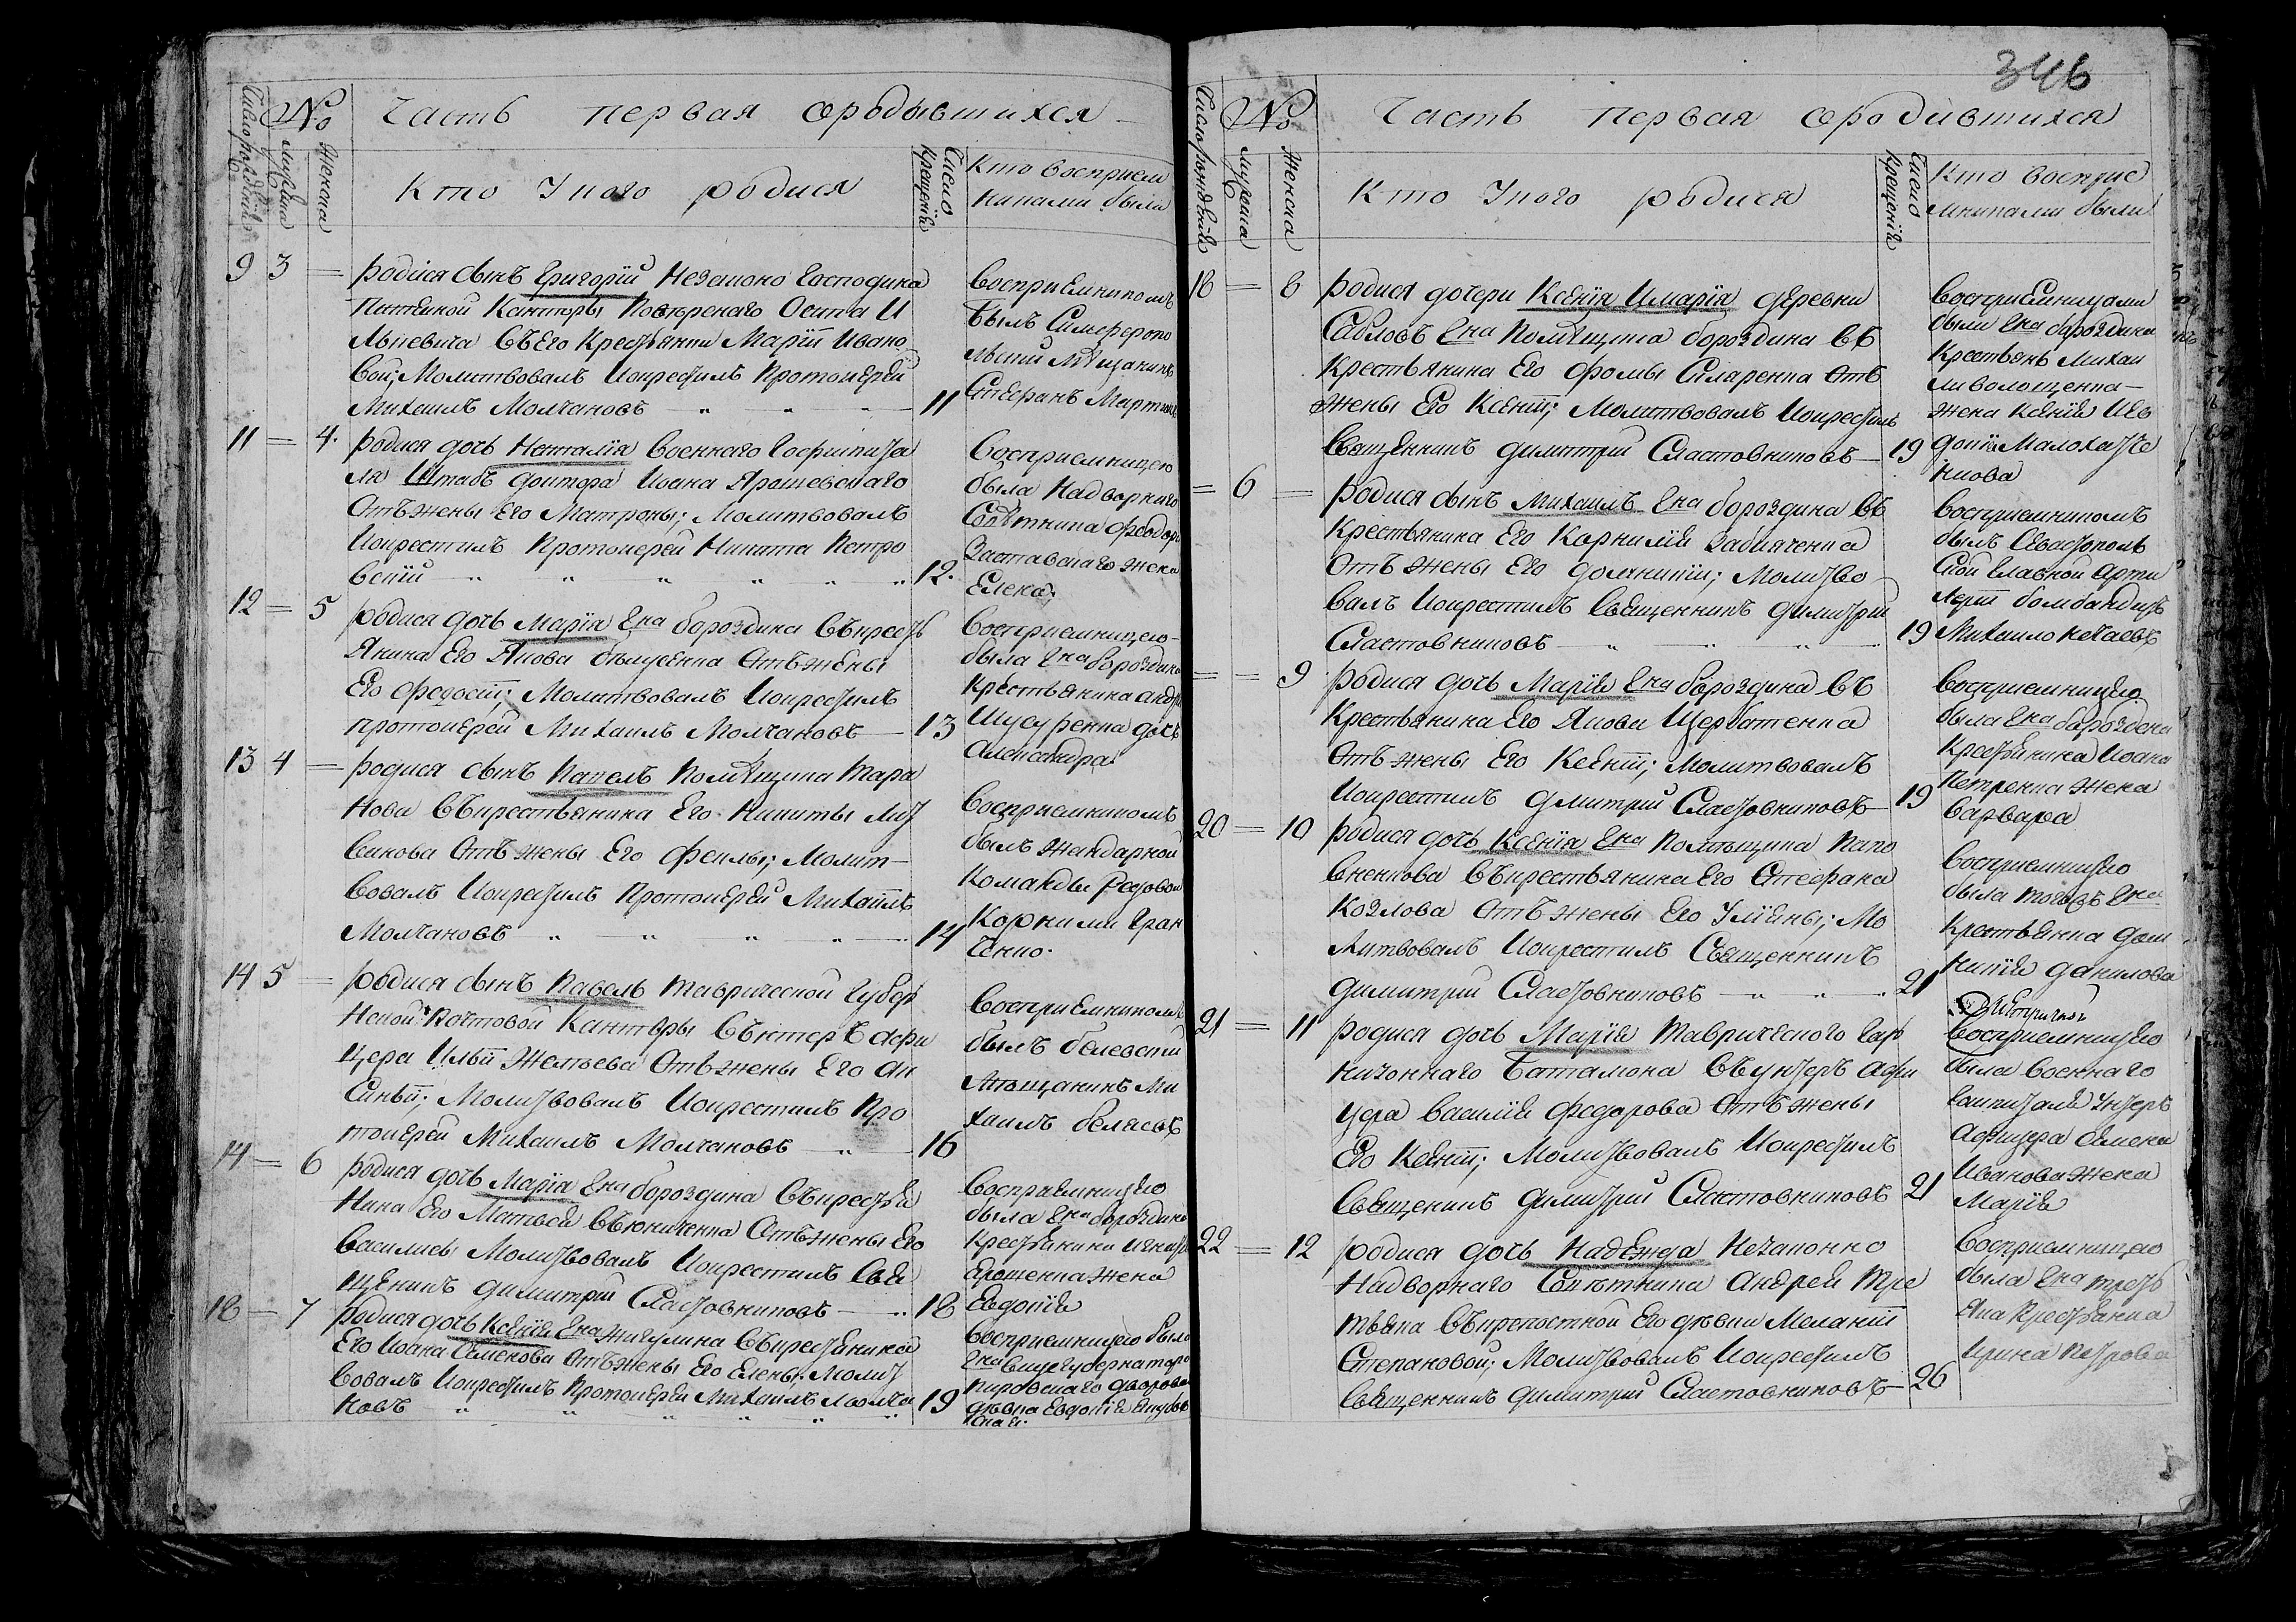 Число рожденія
№
мужеска
женска
Часть первая ородывшихся
Кто Уного родися
Число крещенія
Кто восприем
никами были
9 3 —
Родися сынъ Григорій Незаконо Господина
Питейной Канторы Повѣренаго Осипа И
льичевича Съ Его Крестьянки Маріи Ивано
вой; Молитвовалъ Икрестилъ Протоиерей
Михаилъ Молчановъ
11
Восприемникомъ
былъ Симферопо
льскій Мѣщанинъ
Стефанъ Мартин
11 — 4.
Родися дочь Наталія Военнаго Госпиталя
ля Штабъ доктора Иоана Ярошевскаго
Отъ жены Его Матроны; Молитвовалъ
Икрестилъ Протоиерей Никита Петро
вскій
12.
Восприемницею
была Надворнаго
Совѣтника Феодора
Заставскаго жена
Елена.
12 — 5
Родися дочь Марія Гна бороздина Съкресть
янина Его Якова Отъ жены
Его Федосіи; Молитвовалъ Икрестилъ
протоиерей Михаилъ Молчановъ
13
Восприемницею
была Гна бороздина
Крестьянина Андре
дочь
Александра
13 4 —
Родися сынъ Павелъ Помѣщика Тара
нова Съкрестьянина Его Никиты Лит
винова Отъ жены Его Феклы; Молит
вовалъ Икрестилъ Протоиерей Михаилъ
Молчановъ
14
Восприемникомъ
былъ Жандарной
Команды Редовой
Корнилий Гран
ченко.
14 5 —
Родися сынъ Павелъ Таврической Губер
нской Почтовой Канторы Сънтеръ афи
цера Ильи Желтьева Отъ жены Его Ак
синьи; Молитвовалъ Икрестилъ Про
тоиерей Михаилъ Молчановъ
16
Восприемникомъ
былъ белевский
мѣщанинъ Ми
хаилъ беляевъ
14 — 6
Родися дочь Марія Гна бороздина Съкрестья
нина Его Матвея Отъ жены Его
Василисы Молитвовалъ Икрестилъ Свя
щенникъ Димитрий Сластовниковъ
18
Восприемницею
была Гна бороздина
Крестьянина Игната
Ярошенка жена
Евдокія
18 — 7
Родися дочь Ксенія Гна Жигулина Съкрестьянина
Его Иоана Семенова Отъ жены Его Елены; Молит
вовалъ Икрестилъ Протоиерей Михаилъ Молча
новъ
19
Восприемницею была
Гна Вице губернатора
дворовая
девка Евдокія
ская.
346
Число рожденія
№
мужеска
женска
Часть первая ородившихся
Кто Уного родися
Число крещенія
Кто восприе
мниками были
18 — 8
Родися дочери Ксенія Имарія деревни
Сабловъ Гна Помѣщика бороздина Съ
Крестьянина Его Фомы Склренка Отъ
жены Его Ксении; Молитвовалъ Икрестилъ
Священникъ Димитрий Сластовниковъ
19
Восприемницами
были Гна бороздина
Крестьянъ Михаи
ла волощенка
жена Ксенія Иев
докія Малохатче
нкова
= 6 —
Родися сынъ Михаилъ Гна бороздина Съ
Крестьянина Его Корнилія Забияченка
Отъ жены Его Домникии; Молитво
валъ Икрестилъ Священникъ Димитрий
Сластовниковъ
19
Восприемникомъ
былъ Севастополь
ской Главной Арти
лерии бомбандиръ
Михаило Нечаевъ
= — 9
Родися дочь Марія Гна бороздина Съ
Крестьянина Его Якова Щербатенка
Отъ жены Его Ксении; Молитвовалъ
Икрестилъ Дмитрий Сластовниковъ
19
Восприемницею
была Гна бороздена
Крестьянина Иоана
Петренка жена
Варвара
20 — 10
Родися дочь Ксенія Гна Помѣщика Капо
вненкова Съкрестьянина Его Стефана
Козлова Отъ жены Его Уляны; Мо
литвовалъ Икрестилъ Священникъ
Димитрий Сластовниковъ
21
Восприемницею
была тогожъ Гна
Крестьянка Дом
никія Данилова
21 — 11
Родися дочь Марія Таврического Гар
низоннаго Баталиона Съунтеръ Афи
цера Василія Федорова Отъ жены
Его Ксении; Молитвовалъ Икрестилъ
Священникъ Димитрий Сластовниковъ
21
Восприемницею
была Военнаго
Гашпиталя Унтеръ
Афицера Семена
Иванова жена
Марія
22 — 12
Родися дочь Надежда Незаконно
Надворнаго Совѣтника Андрея Тре
тьяка Съкрепостной Его дѣвки Меланіи
Степановой; Молитвовалъ Икрестилъ
Священникъ Димитрий Сластовниковъ
26
Восприемницею
была Гна треть
яка Крестьянка
Ирина Петрова